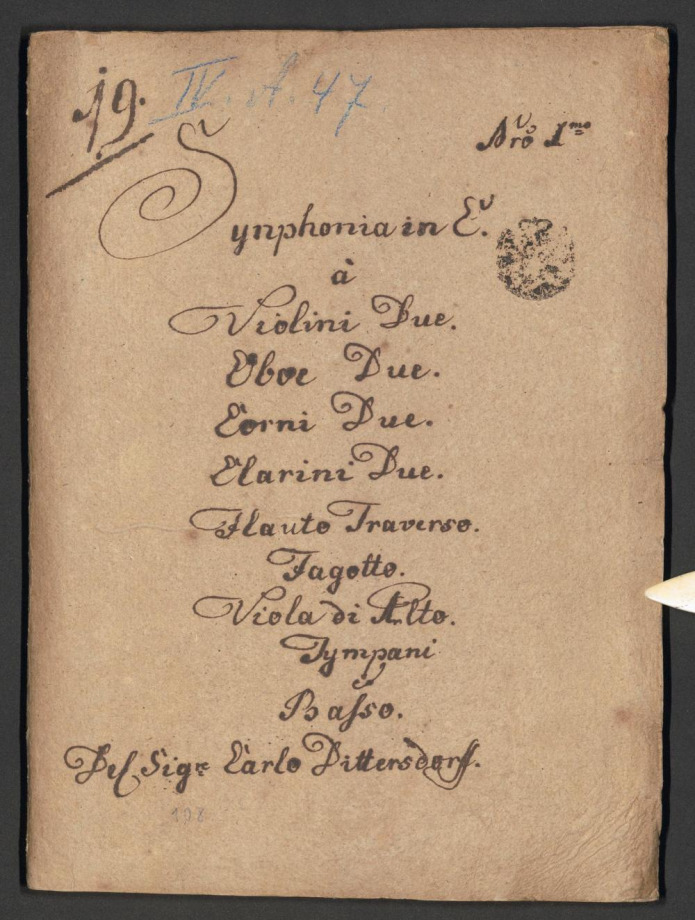 19. IV. A. 47
Nro 1mo
Synphonia in C.
à
Violini Due.
Oboe Due.
Corni Due.
Clarini Due.
Flauto Traverso.
Fagotto.
Viola di Alto.
Tympani
è
Basso.
Del Sigr Carlo Dittersdorff.
108